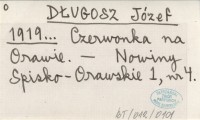 o
DŁUGOSZ Józef
1919... Czerwonka na
Orawie. — Nowiny
Spisko-Orawskie 1, nr 4.